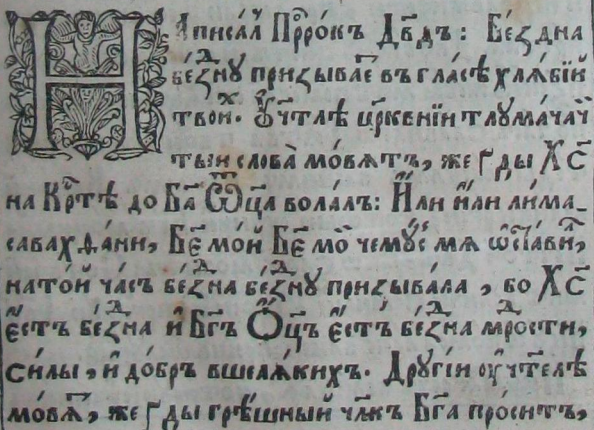 Написа́л Прⷪ҇рокъ Дв҃дъ: Бе́здна
бе́ⷥдну призыва́еⷮ въ гла́сѣ хлѧ́бїй
твоиⷯ. Ѹч҃тлѣ цр҃кве́нїи тлума́чаⷱ҇ѝ
тыи слова̀ мо́вѧтъ, же ґды Хс҃
на Крⷭ҇тѣ до Ба҃ Ѿц҃а вола́лъ: И҆́ли и҆́ли ли́ма_
савахѳа́ни, Бж҃е мо́й Бж҃е моⷨ҇ чему́сь мѧ ѡ҆ста́виⷧ,
на то́й ча́съ бе́ⷥдна бе́ⷥдну призыва́ла, бо Хс҃
є҆́стъ бе́ⷥдна и҆ Бг҃ъ Ѻ҆ц҃ъ є҆́стъ бе́ⷥдна мⷣрости,
си́лы, и҆ до́бръ вшелѧ́кихъ. Дрꙋгі́и ѹчт҃елѣ
мо́вѧⷮ, же ґды грѣ́шный чл҃къ Бг҃а про́ситъ,